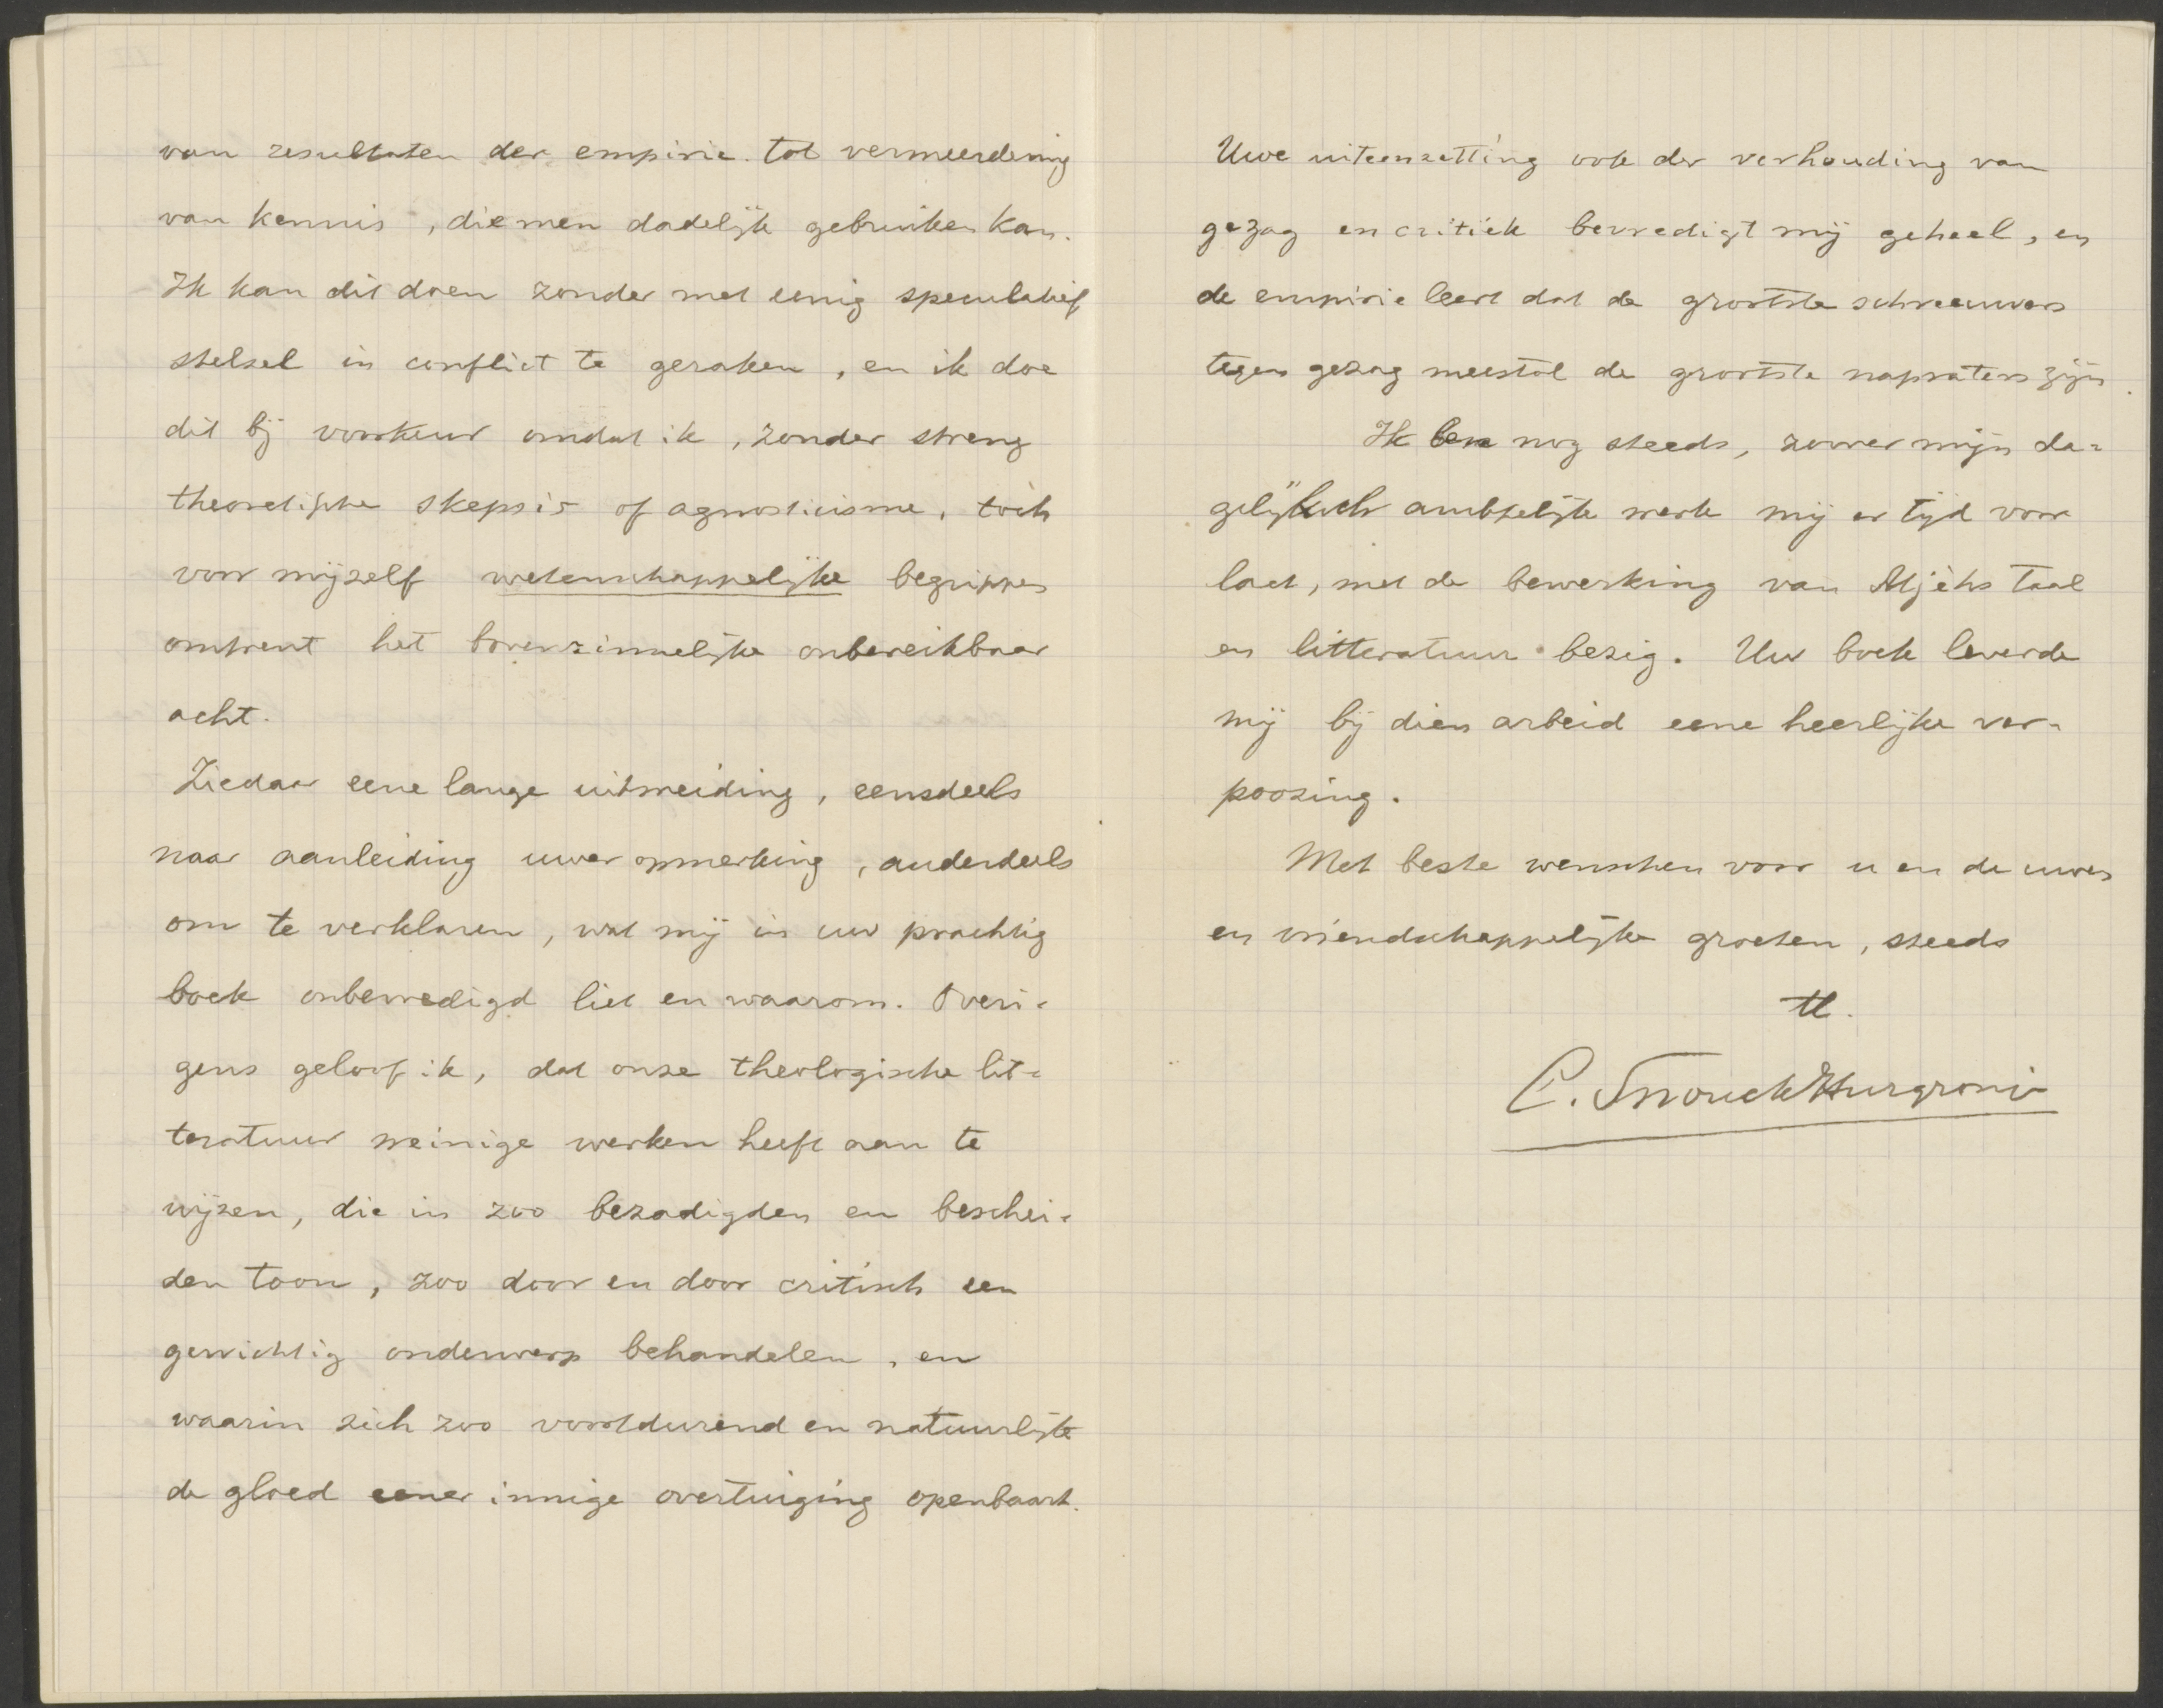 van resultaten der empirie tot vermeerdering
van kennis, die men dadelijk gebruiken kan.
Ik kan dit doen zonder met eenig speculatief
stelsel in conflict te geraken, en ik doe
dit bij voorkeur omdat ik, zonder streng
theoretische skepsis of agnosticisme, toch
voor mijzelf wetenschappelijke begrippen
omtrent het bovenzinnelijke onbereikbaar
acht.
Ziedaar eene lange uitweiding, eensdeels
naar aanleiding uwer opmerking, anderdeels
om te verklaren, wat mij in uw prachtig
boek onbevredigd liet en waarom. Overi-
gens geloof ik, dat onze theologische lit-
teratuur weinige werken heeft aan te
wijzen, die in zoo bezadigden en beschei-
den toon, zoo door en door critisch een
gewichtig onderwerp behandelen, en
waarin zich zoo voortdurend en natuurlijk
de gloed eener innige overtuiging openbaart.
Uwe uiteenzetting ook der verhouding van
gezag en critiek bevredigt mij geheel, en
de empirie leert dat de grootste schreeuwers
tegen gezag meestal de grootste napraters zijn.
Ik ben nog steeds, zoover mijn da-
gelijksch ambtelijk werk mij er tijd voor
laat, met de bewerking van Atjèhs taal
en litteratuur bezig. Uw boek leverde
mij bij dien arbeid eene heerlijke ver-
poozing.
Met beste wenschen voor u en de uwen
en vriendschappelijke groeten, steeds
tt.
C. Snouck Hurgronje